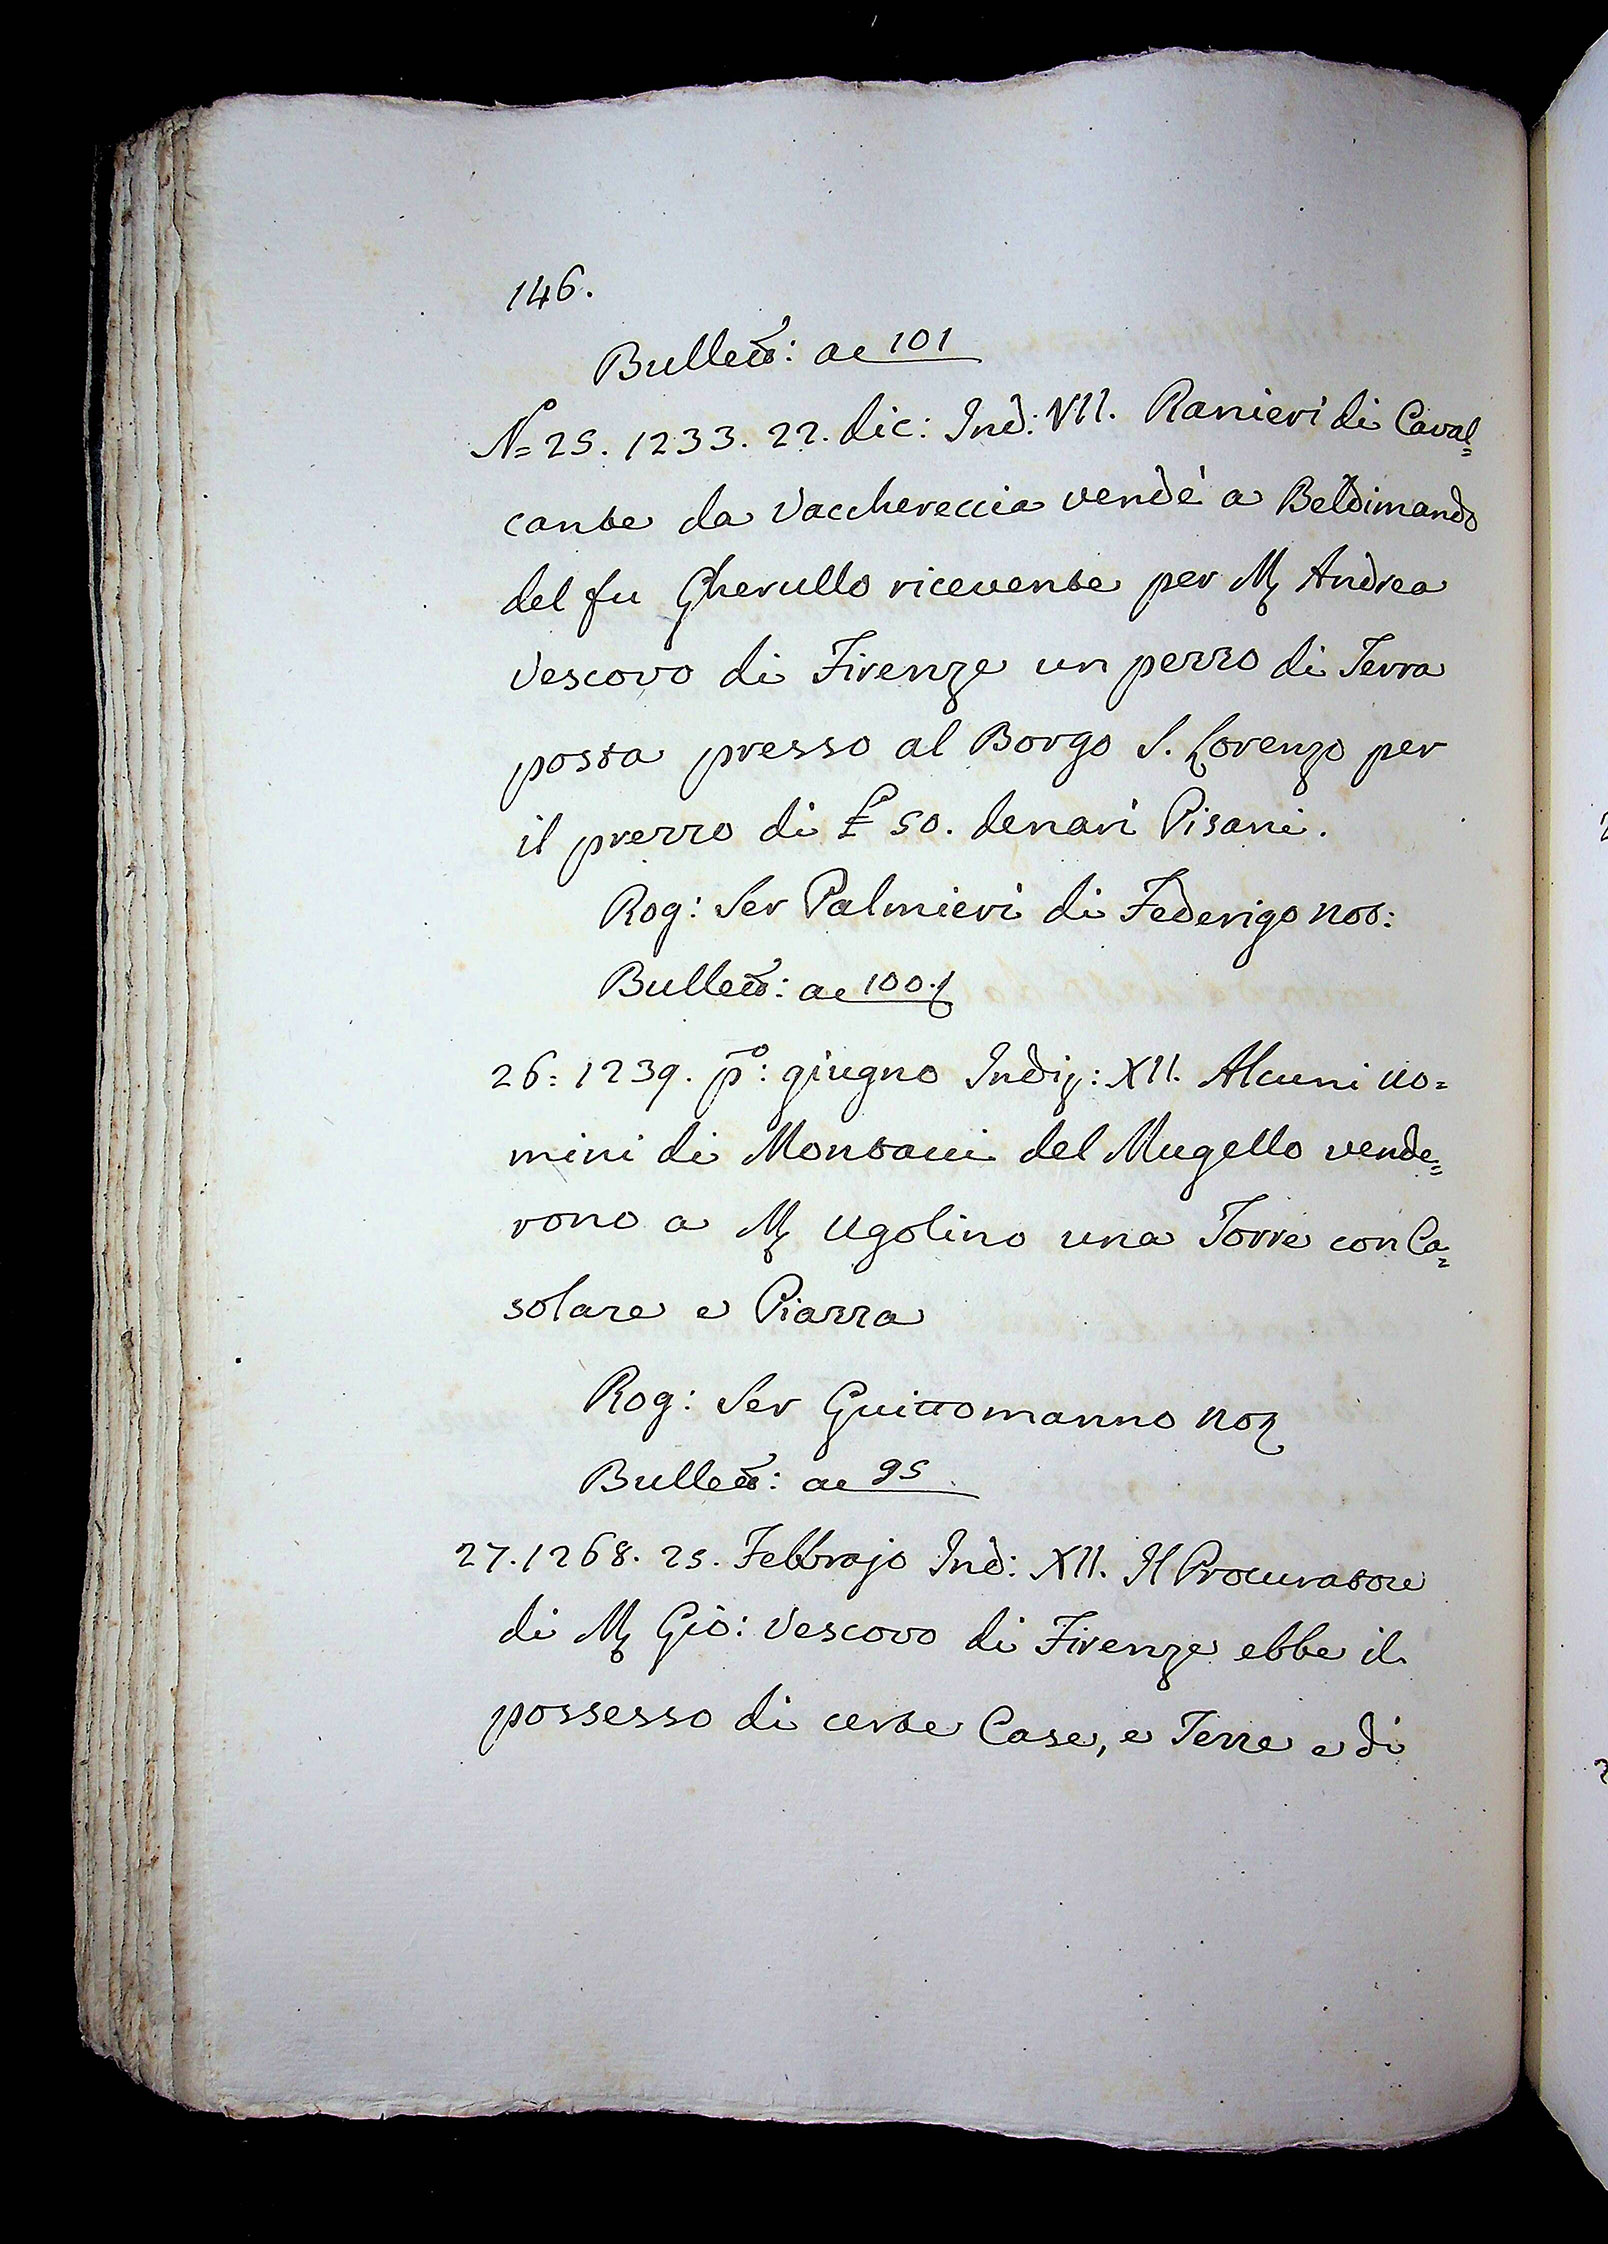 146.
Bullett: a c 101
N.º 25. 1233. 22. dic: Ind: VII. Ranieri di Caval=
cante da Vacchereccia vendè a Beldimando
del fu Gherullo ricevente per M. Andrea
Vescovo di Firenze un pezzo di Terra
posta presso al Borgo S. Lorenzo per
il prezzo di £ 50. denari Pisani.
Rog: Ser Palmieri di Federigo not:
Bullett: a c 100.
26= 1239. pº: giugno Indiz: XII. Alcuni uo=
mini di Montacci del Mugello vende=
rono a M. Ugolino una Torre con Ca=
solare e Piazza
Rog: Ser Guittomanno not
Bullett: a c 95
27. 1268. 25. Febbrajo Ind: XII. Il Procuratore
di M. Gio: Vescovo di Firenze ebbe il
possesso di certe Case, e Terre e di